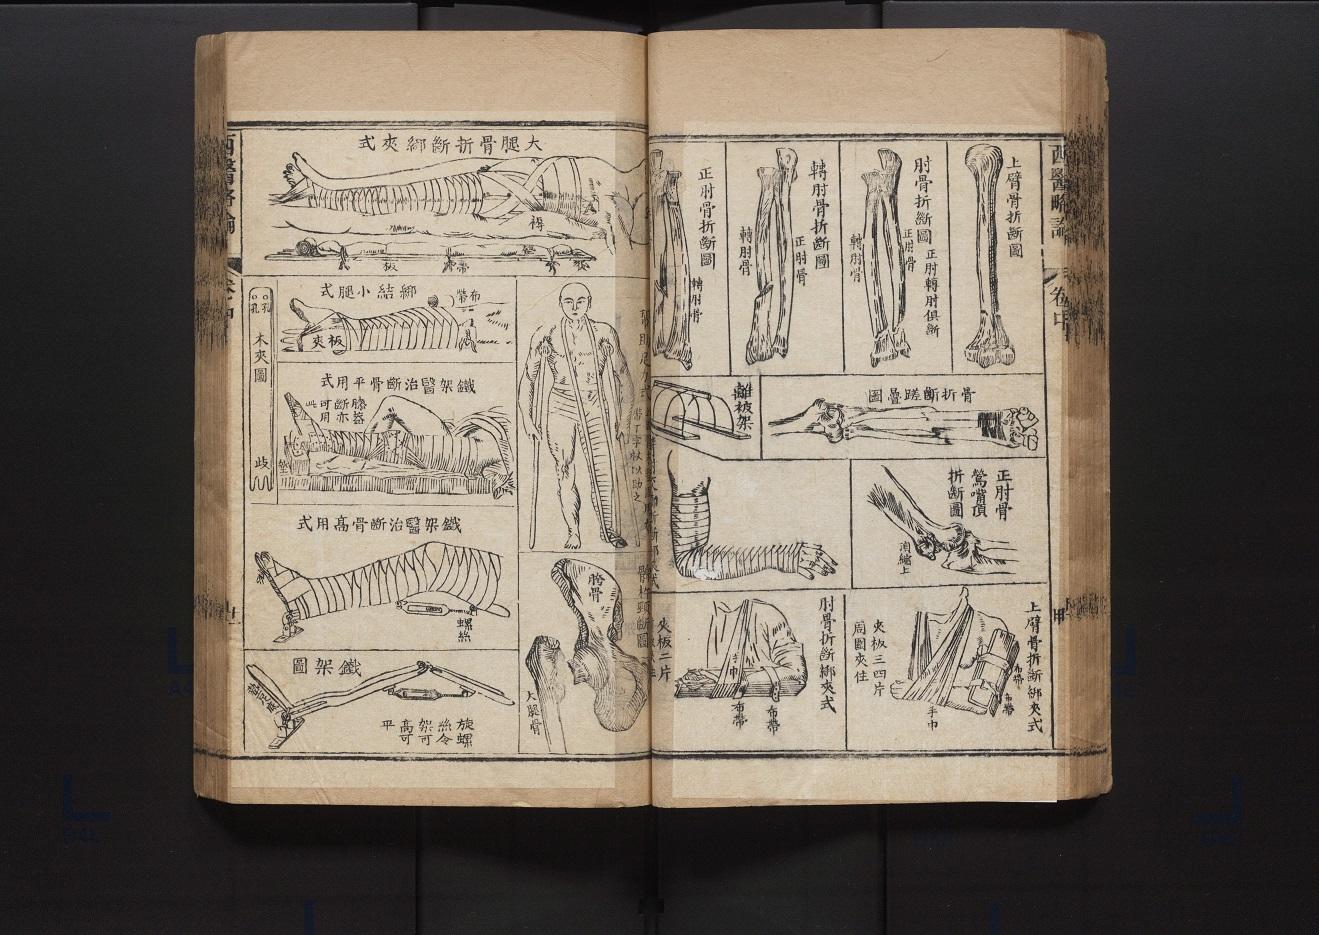 西醫略論
卷中
上臂骨折斷圖
肘骨折斷圖
正肘轉肘俱斷
正肘骨
轉肘骨
轉肘骨折斷圖
正肘骨
轉肘骨
正肘骨折斷圖
轉肘骨
骨折斷蹉疊圖
離被架
正肘骨
鶯嘴頂
折斷圖
頂縮上
上臂骨折斷綁夾式
布帶
布帶
手巾
夾板三四片
周圍夾住
肘骨折斷綁夾式
手巾
布帶
布帶
夾板二片
大腿骨折斷綁夾式
褥
板
帶
綁結小腿式
布帶
夾板
孔
孔
木夾圖
歧
鐵架醫治斷骨平用式
膝器
斷亦
可用
鐵架醫治斷骨高用式
螺絲
鐵架圖
旋螺
絲令
架可
高可
平
胯骨
大腿骨